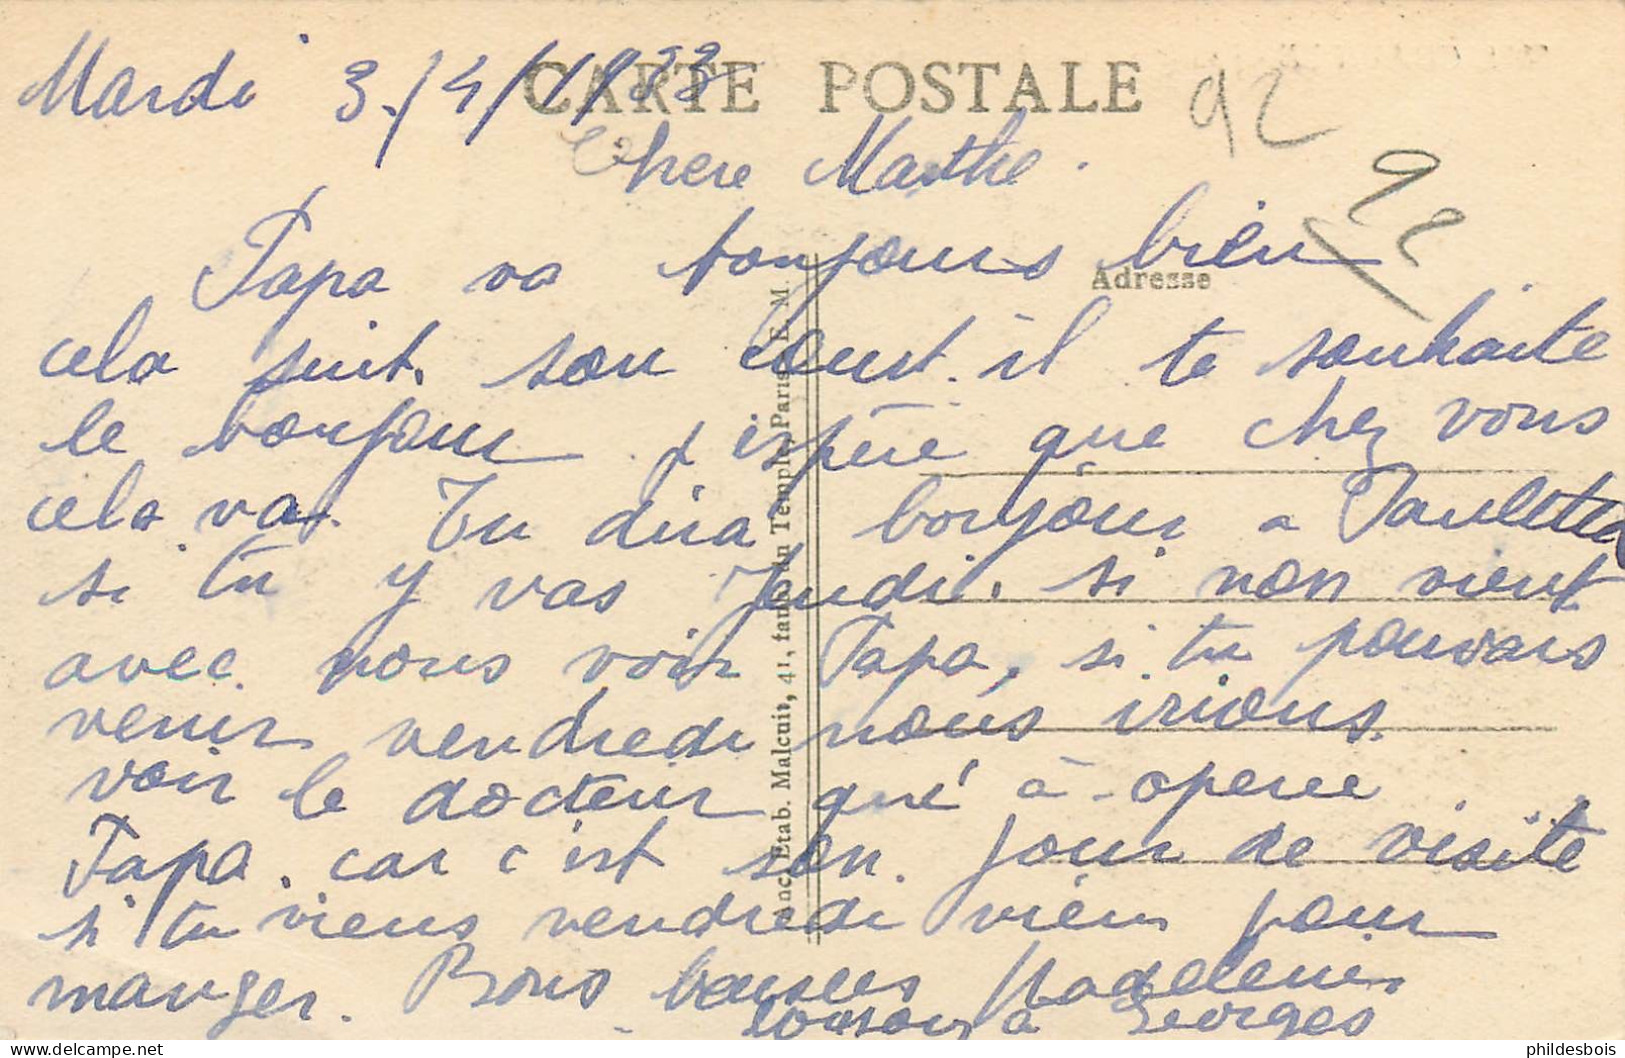 CARTE POSTALE
Mardi 3/4/1933
92
Chere Marthe.
92
Papa va toujours bien
Adresse
cela suit son court. il te souhaite
le bonjour j'espère que chez vous
cela va. Tu dira bonjour a Paulette
si tu y vas Jeudi. si non vient
avec nous voir Papa, si tu pouvais
venir vendredi nous irions.
voir le docteur qui à operee
Papa. car c'est son jour de visite
si tu viens vendredi viens pour
manger. Bons baisers Madeleine
a Georges
Anc. Etab. Malcuit, 41, faub. du Temple, Paris E. M.
phildesbois